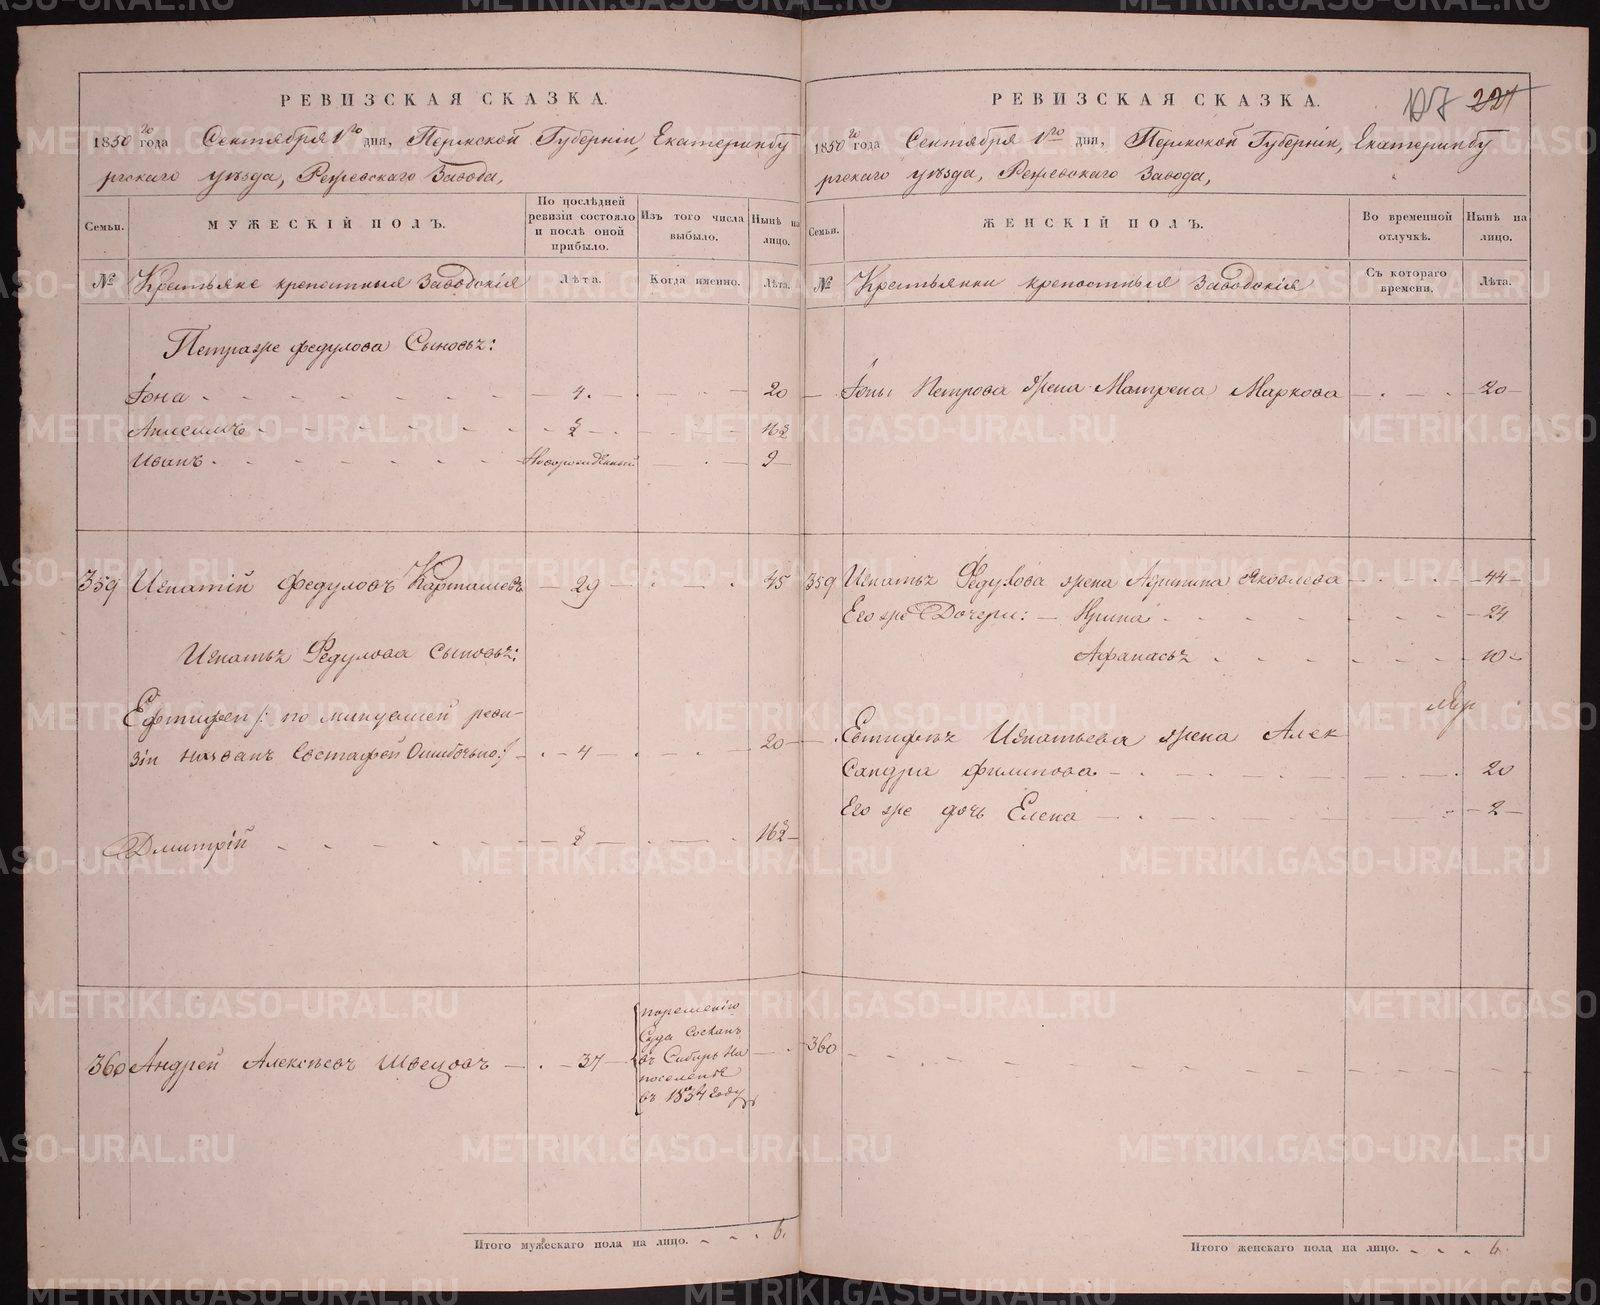 РЕВИЗСКАЯ СКАЗКА.
1850го года Сентября 1го дня, Пермской Губерніи, Екатеринбу
ргскаго уѣзда, Режевскаго Завода,
Семьи.
МУЖЕСКІЙ ПОЛЪ.
По послѣдней ревизіи состояло и послѣ оной прибыло.
Изъ того числа выбыло.
Нынѣ на лицо.
№
Крестьяне крепостныя Заводскія
Лѣта.
Когда именно.
Лѣта.
Петра же Федулова Сыновьѣ:
Іона 4. 20
Анисимъ ½ 16½
Иванъ Новорожденный 9
359 Игнатій Федуловъ Карташевъ 29 45
Игнатьѣ Федулова Сыновьѣ:
Ефтифей /: по минувшей реви-
зіи названъ Евстафей Ошибочно :/ 4 20
Дмитрій ½ 16½
360 Андрей Алексѣевъ Швецовъ 37
порешенію
Суда Сосланъ
въ Сибирь На
поселеніе
въ 1834м Году
Итого мужескаго пола на лицо. 6.
РЕВИЗСКАЯ СКАЗКА.
107 221
1850го года Сентября 1го дня, Пермской Губерніи, Екатеринбу
ргскаго уѣзда, Режевскаго Завода,
Семьи.
ЖЕНСКІЙ ПОЛЪ.
Во временной отлучкѣ.
Нынѣ на лицо.
№
Крестьянки крепостныя Заводскія
Съ котораго времени.
Лѣта.
Іоны Петрова жена Матрена Маркова 20
359 Игнатьѣ Федулова жена Акулина Яковлева 44
Его же Дочери: Ирина 24
Афанасьѣ 10
Евтифѣѣ Игнатьева жена Алек
Сандра Филипова 20
Его же дочь Елена 2
360
Итого женскаго пола на лицо. 6.
METRIKI.GASO-URAL.RU